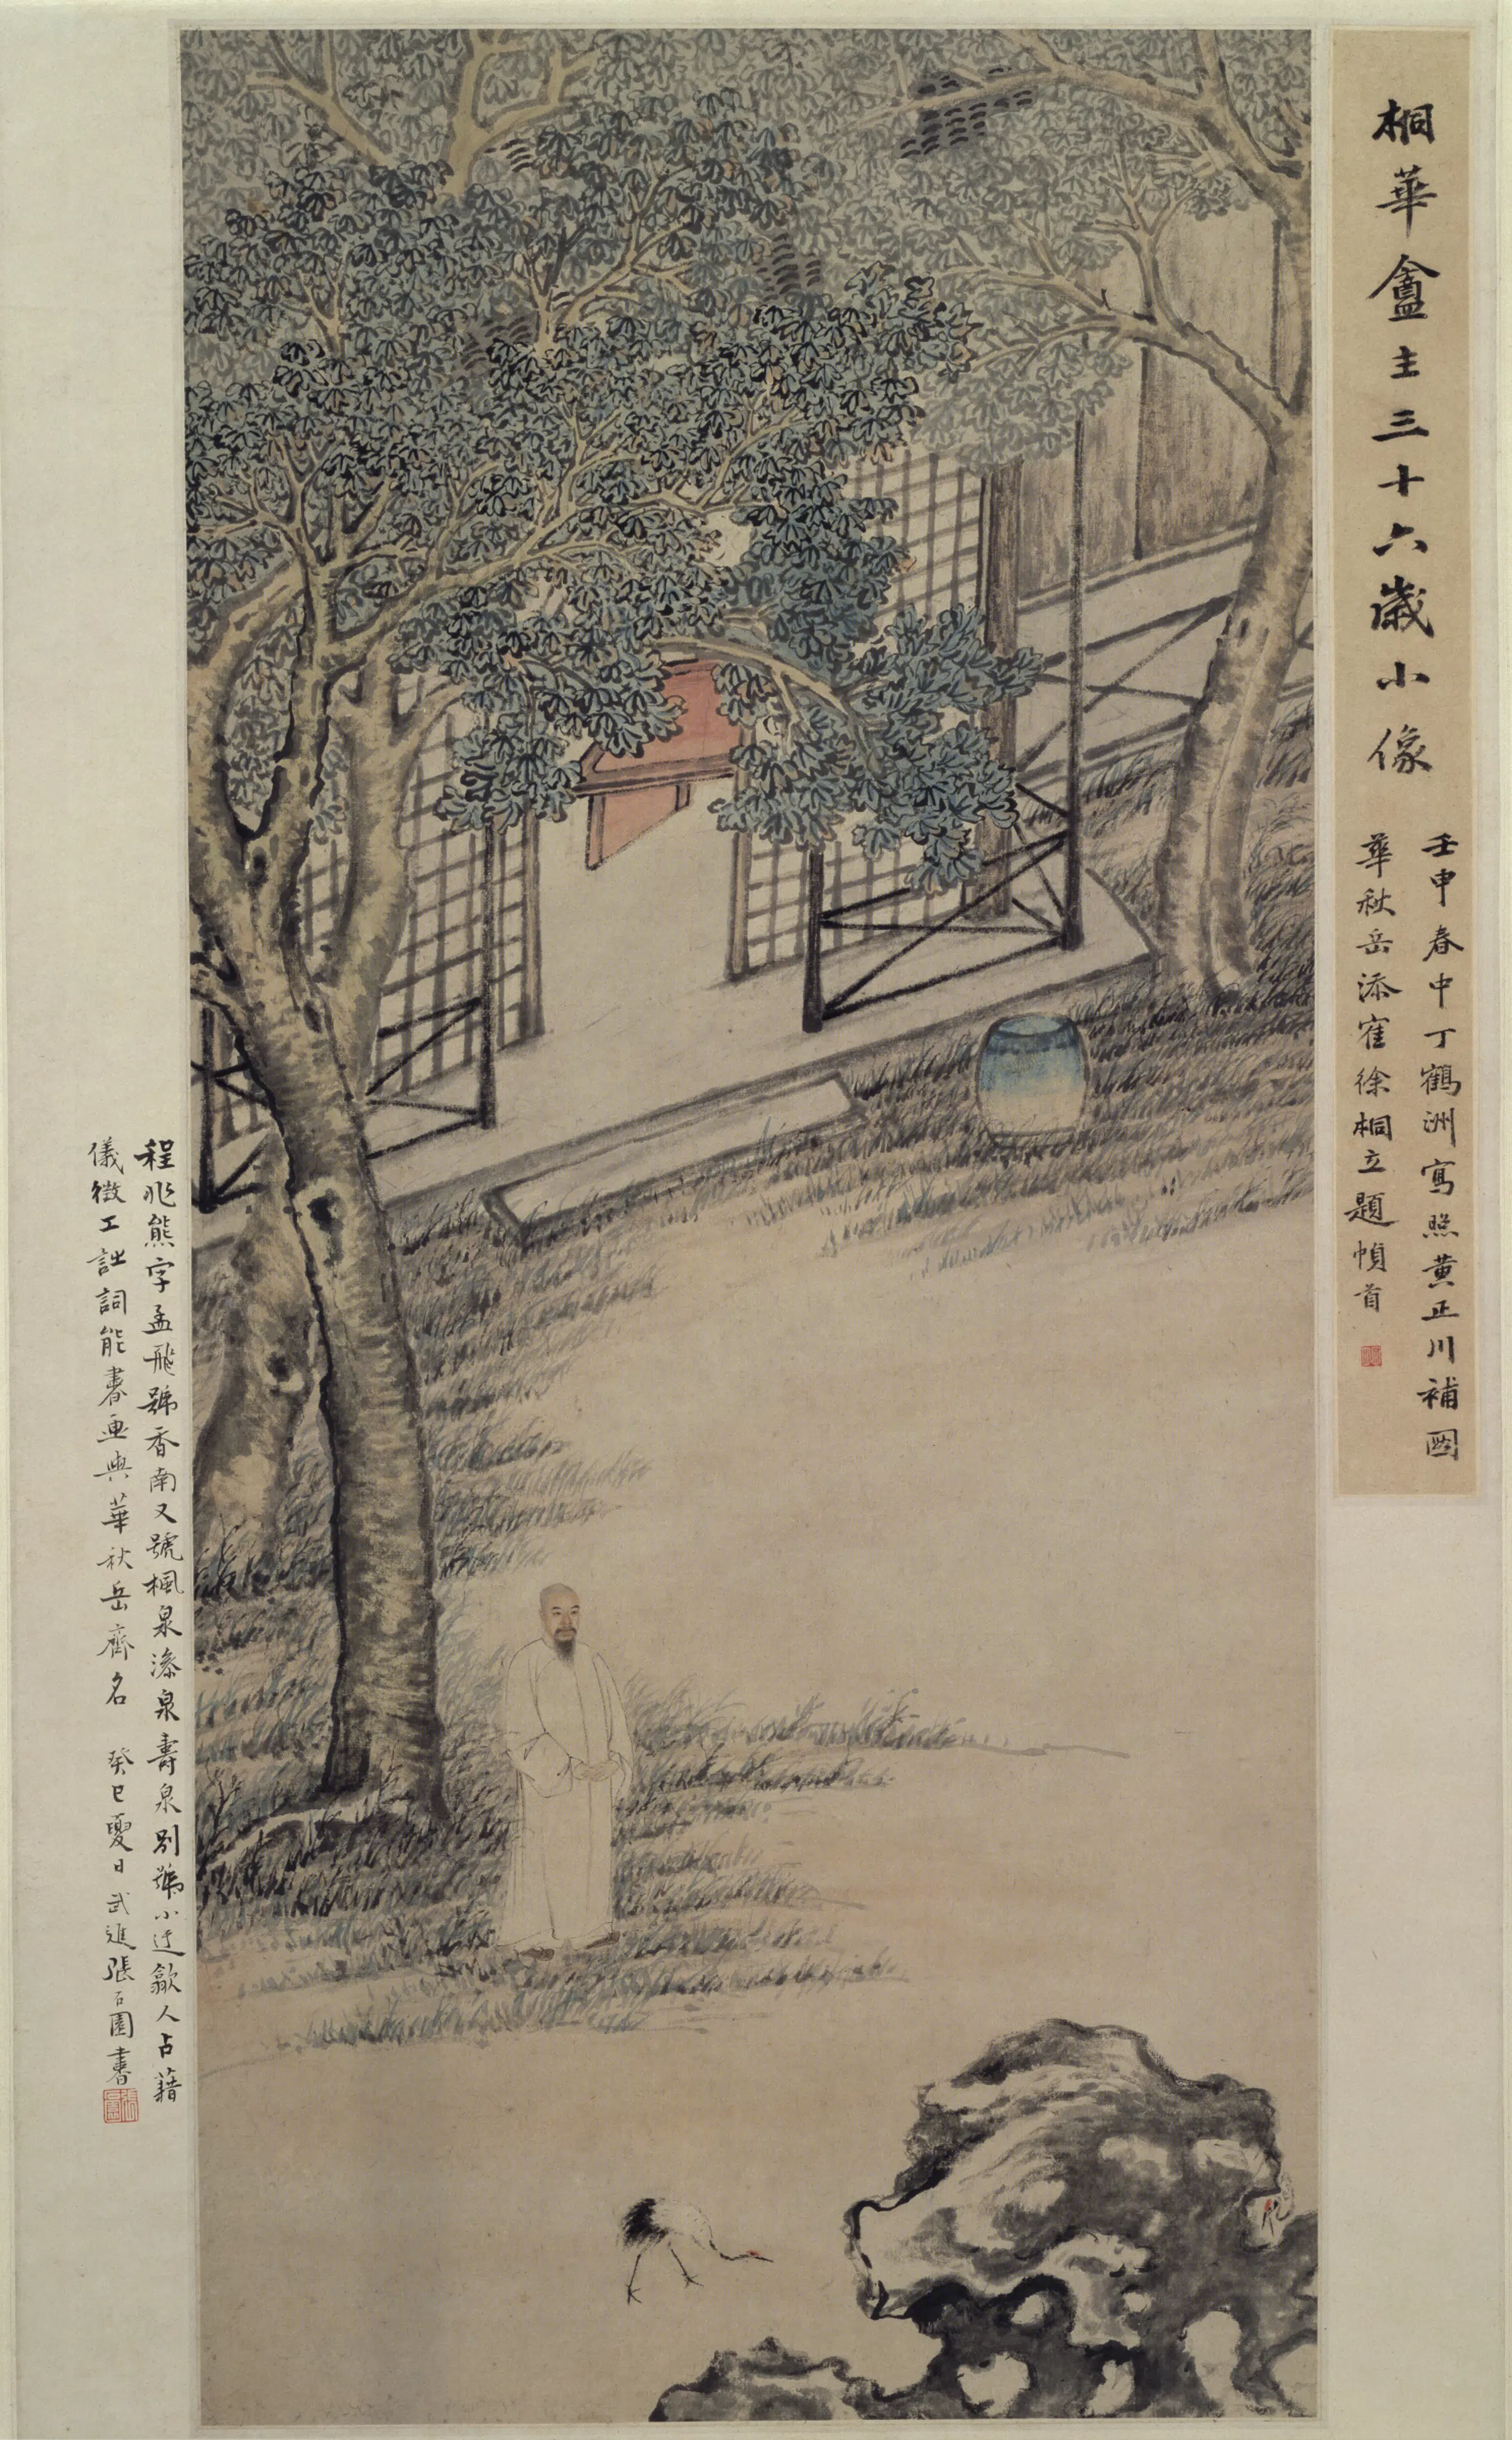 桐華盦主三十六歲小像
壬申春中丁鶴洲寫照黄正川補圖
華秋岳添寉徐桐立題幀首
程兆熊字孟飛號香南又號楓泉澹泉壽泉別號小迂歙人占籍
儀徴工詩詞能書画與華秋岳齊名 癸巳夏日武進張石園書